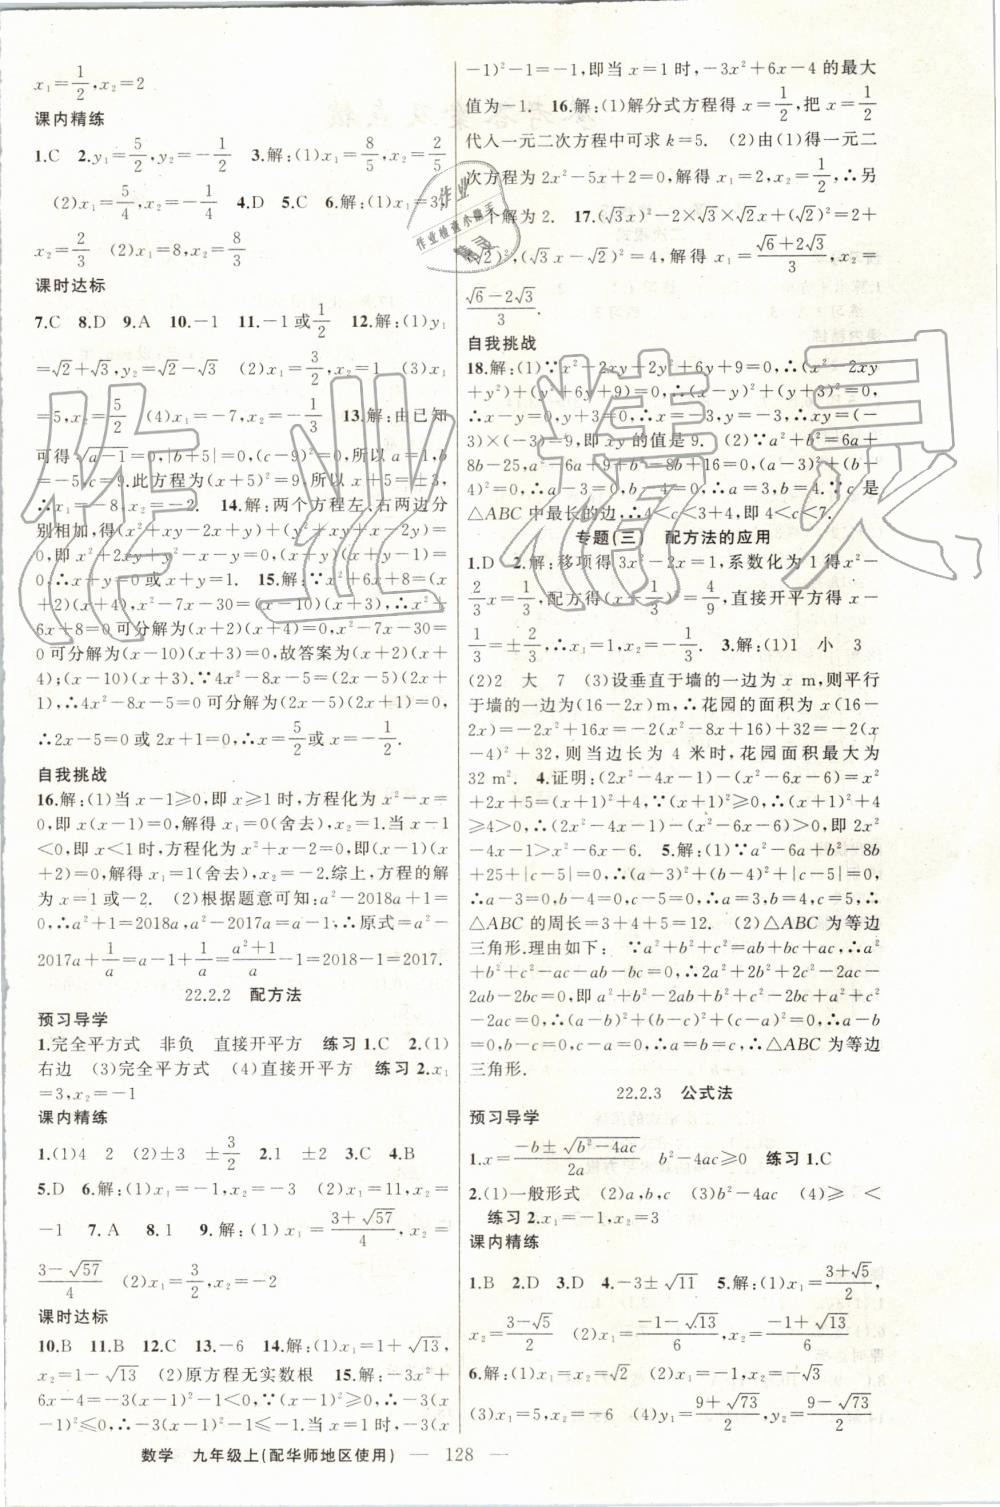 x₁=1/2,x₂=2
课内精练
1.C 2.y₁=5/2,y₂=-1/2 3.解:(1)x₁=8/5,x₂=2/5
(2)x₁=5/4,x₂=-1/2 4.D 5.C 6.解:(1)x₁=3,
x₂=2/3 (2)x₁=8,x₂=8/3
课时达标
7.C 8.D 9.A 10.-1 11.-1或1/2 12.解:(1)y₁
=√2+√3,y₂=√2-√3 (2)x₁=3/2,x₂=1 (3)x₁
=5,x₂=5/2 (4)x₁=-7,x₂=-1/3 13.解:由已知
可得√(a-1)=0,|b+5|=0,(c-9)²=0,所以a=1,b
=-5,c=9.此方程为(x+5)²=9.所以x+5=±3,
∴x₁=-8,x₂=-2. 14.解:两个方程左、右两边分
别相加,得(x²+xy-2x+y)+(y²+xy+x-2y)=
0,即x²+2xy+y²-x-y=0,(x+y)(x+y-1)=
0,∴x+y=0或x+y=1. 15.解:∵x²+6x+8=(x
+2)(x+4),x²-7x-30=(x-10)(x+3),∴x²+
6x+8=0可分解为(x+2)(x+4)=0,x²-7x-30=
0可分解为(x-10)(x+3)=0,故答案为(x+2)(x+
4);(x-10)(x+3).∵4x²-8x-5=(2x-5)(2x+
1),∴4x²-8x-5=0可分解为(2x-5)(2x+1)=0,
∴2x-5=0或2x+1=0,∴x=5/2或x=-1/2.
自我挑战
16.解:(1)当x-1≥0,即x≥1时,方程化为x²-x=
0,即x(x-1)=0,解得x₁=0(舍去),x₂=1.当x-1
<0,即x<1时,方程化为x²+x-2=0,即(x-1)(x
+2)=0,解得x₁=1(舍去),x₂=-2.综上,方程的解
为x=1或-2. (2)根据题意可知:a²-2018a+1=
0,∴a²+1=2018a,a²-2017a=a-1,∴原式=a²-
2017a+1/a=a-1+1/a=(a²+1)/a-1=2018-1=2017.
22.2.2 配方法
预习导学
1.完全平方式 非负 直接开平方 练习1.C 2.(1)
右边 (3)完全平方式 (4)直接开平方 练习2.x₁
=3,x₂=-1
课内精练
1.(1)4 2 (2)±3 ±3/2 2.1 ±2 3.C 4.B
5.D 6.解:(1)x₁=-1,x₂=-3 (2)x₁=11,x₂=
-1 7.A 8.1 9.解:(1)x₁=(3+√57)/4,x₂=
(3-√57)/4 (2)x₁=3/2,x₂=-2
课时达标
10.B 11.B 12.C 13.-6 14.解:(1)x₁=1+√13,
x₂=1-√13 (2)原方程无实数根 15.解:-3x²+
6x-4=-3(x-1)²-1<0,∵(x-1)²≥0,∴-3(x
-1)²≤0,∴-3(x-1)²-1≤-1.当x=1时,-3(x
-1)²-1=-1,即当x=1时,-3x²+6x-4的最大
值为-1. 16.解:(1)解分式方程得x=1/2,把x=1/2
代入一元二次方程中可求k=5. (2)由(1)得一元二
次方程为2x²-5x+2=0,解得x₁=2,x₂=1/2,∴另
一个解为2. 17.(√3x)²-2×√3×√2x+(√2)²=2+
(√2)²,(√3x-√2)²=4,解得x₁=(√6+2√3)/3,x₂=
(√6-2√3)/3.
自我挑战
18.解:(1)∵x²-2xy+2y²+6y+9=0,∴(x²-2xy
+y²)+(y²+6y+9)=0,∴(x-y)²+(y+3)²=0,
∴x-y=0,y+3=0,∴x=-3,y=-3,∴xy=(-
3)×(-3)=9,即xy的值是9. (2)∵a²+b²=6a+
8b-25,a²-6a+9+b²-8b+16=0,(a-3)²+(b-
4)²=0,∴a-3=0,b-4=0,∴a=3,b=4.∵c是
△ABC中最长的边,∴4<c<3+4,即4<c<7.
专题(三) 配方法的应用
1.D 2.解:移项得3x²-2x=1,系数化为1得x²-
2/3x=1/3,配方得(x-1/3)²=4/9,直接开平方得x-
1/3=±2/3,∴x₁=1,x₂=-1/3. 3.解:(1)1 小 3
(2)2 大 7 (3)设垂直于墙的一边为x m,则平行
于墙的一边为(16-2x)m,∴花园的面积为x(16-
2x)=-2x²+16x=-2(x²-8x+16)+32=-2(x-
4)²+32,则当边长为4米时,花园面积最大为
32 m². 4.证明:(2x²-4x-1)-(x²-6x-6)=x²
+2x+5=(x+1)²+4,∵(x+1)²≥0,∴(x+1)²+4
≥4>0,∴(2x²-4x-1)-(x²-6x-6)>0,即2x²
-4x-1>x²-6x-6. 5.解:(1)∵a²-6a+b²-8b
+25+|c-5|=0,∴(a-3)²+(b-4)²+|c-5|=0,
∴a-3=0,b-4=0,c-5=0,∴a=3,b=4,c=5,∴
△ABC的周长=3+4+5=12. (2)△ABC为等边
三角形.理由如下: ∵a²+b²+c²=ab+bc+ac,∴a²
+b²+c²-ac-ab-bc=0,∴2a²+2b²+2c²-2ac-
2ab-2bc=0,即a²+b²-2ab+b²+c²-2bc+a²+c²
-2ac=0,∴(a-b)²+(b-c)²+(c-a)²=0,∴a-b=
0,b-c=0,c-a=0,∴a=b=c,∴△ABC为等边
三角形.
22.2.3 公式法
预习导学
1.x=(-b±√(b²-4ac))/2a b²-4ac≥0 练习1.C
2.(1)一般形式 (2)a,b,c (3)b²-4ac (4)≥ <
练习2.x₁=-1,x₂=3
课内精练
1.B 2.D 3.D 4.-3±√11 5.解:(1)x₁=(3+√5)/2,
x₂=(3-√5)/2 (2)x₁=(-1-√13)/6,x₂=(-1+√13)/6
6.解:(1)x₁=x₂=√2 (2)x₁=x₂=-√3
(3)x₁=5,x₂=-2 (4)y₁=(9+√73)/2,y₂=(9-√73)/2
数学 九年级上(配华师地区使用) — 128 —
作业
作业检查小助手
精灵
作业精灵